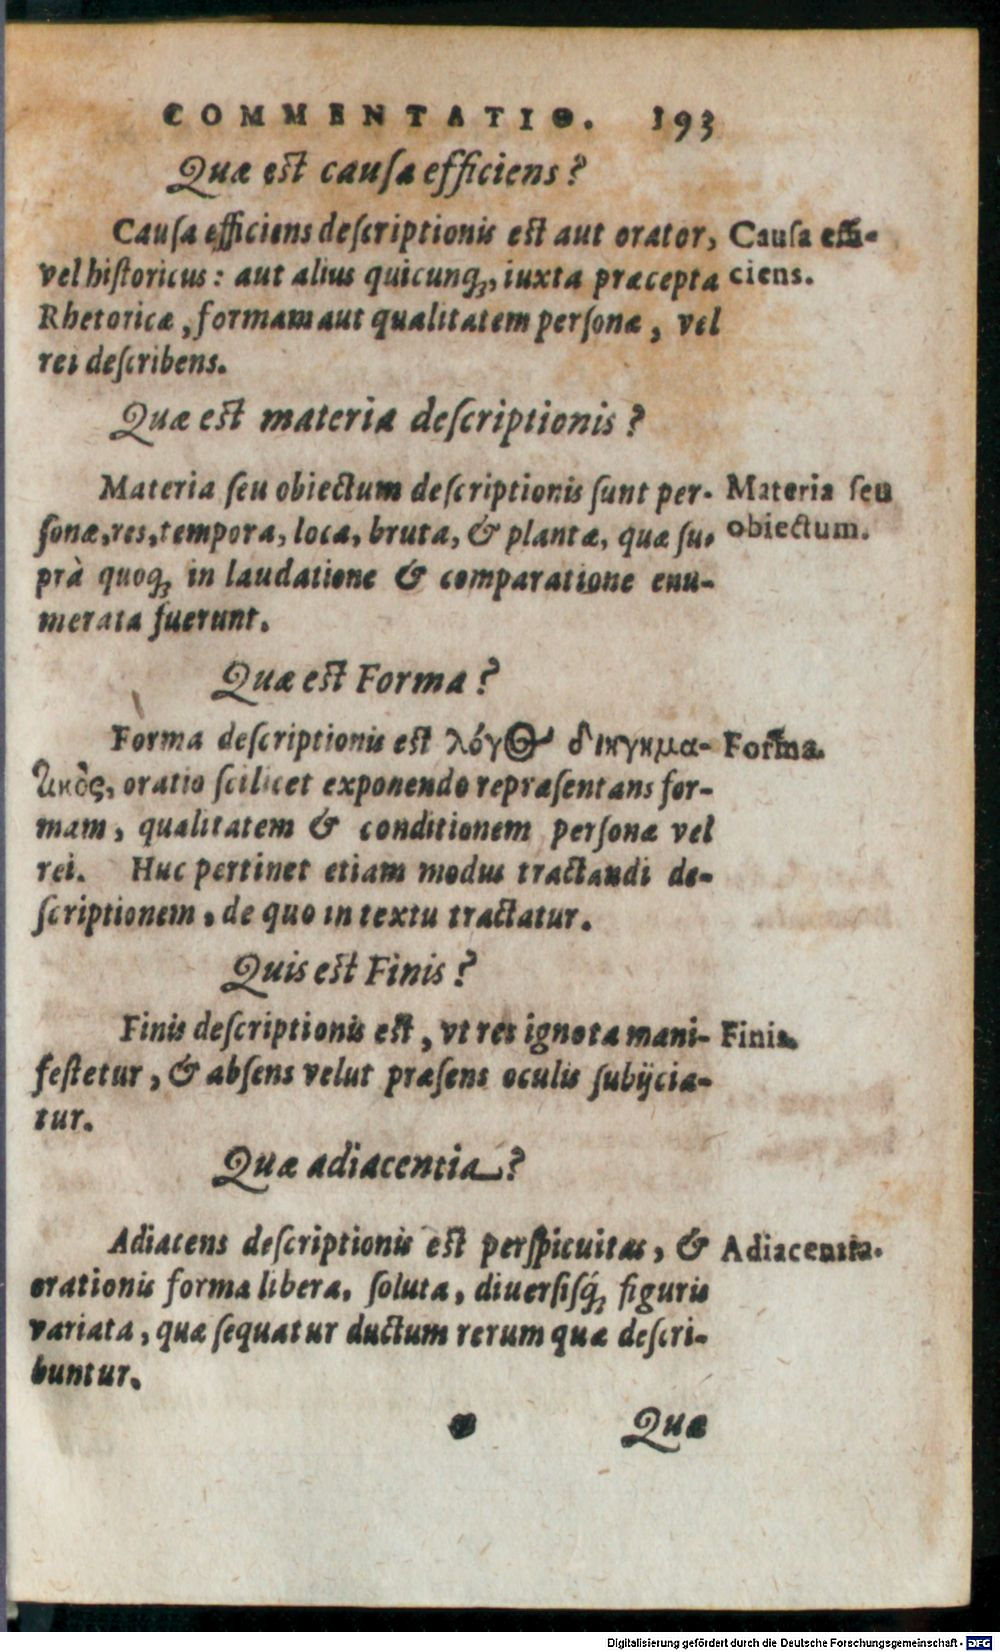 COMMENTATIO. 193
Quæ est causa efficiens?
Causa efficiens descriptionis est aut orator,
Causa effi-
vel historicus: aut alius quicunq́;, iuxta præcepta
ciens.
Rhetoricæ, formam aut qualitatem personæ, vel
rei describens.
Quæ est materia descriptionis?
Materia seu obiectum descriptionis sunt per-
Materia seu
sonæ, res, tempora, loca, bruta, & plantæ, quæ su-
obiectum.
prà quoq́; in laudatione & comparatione enu-
merata fuerunt.
Quæ est Forma?
Forma descriptionis est λόγος διηγημα-
Forma.
τικὸς, oratio scilicet exponendo repræsentans for-
mam, qualitatem & conditionem personæ vel
rei. Huc pertinet etiam modus tractandi de-
scriptionem, de quo in textu tractatur.
Quis est Finis?
Finis descriptionis est, vt res ignota mani-
Finis.
festetur, & absens velut præsens oculis subijcia-
tur.
Quæ adiacentia?
Adiacens descriptionis est perspicuitas, &
Adiacentia.
orationis forma libera, soluta, diuersisq́; figuris
variata, quæ sequatur ductum rerum quæ descri-
buntur.
Quæ
Digitalisierung gefördert durch die Deutsche Forschungsgemeinschaft - DFG